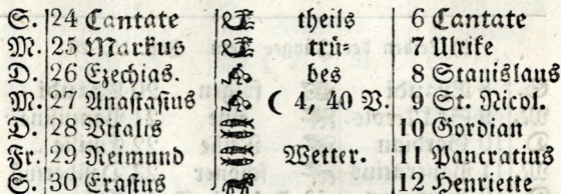 S. 24 Cantate theils 6 Cantate
M. 25 Markus trü- 7 Ulrike
D. 26 Ezechias. bes 8 Stanislaus
M. 27 Anastasius ☾ 4, 40 V. 9 St. Nicol.
D. 28 Vitalis 10 Gordian
Fr. 29 Reimund Wetter. 11 Pancratius
S. 30 Erastus 12 Henriette